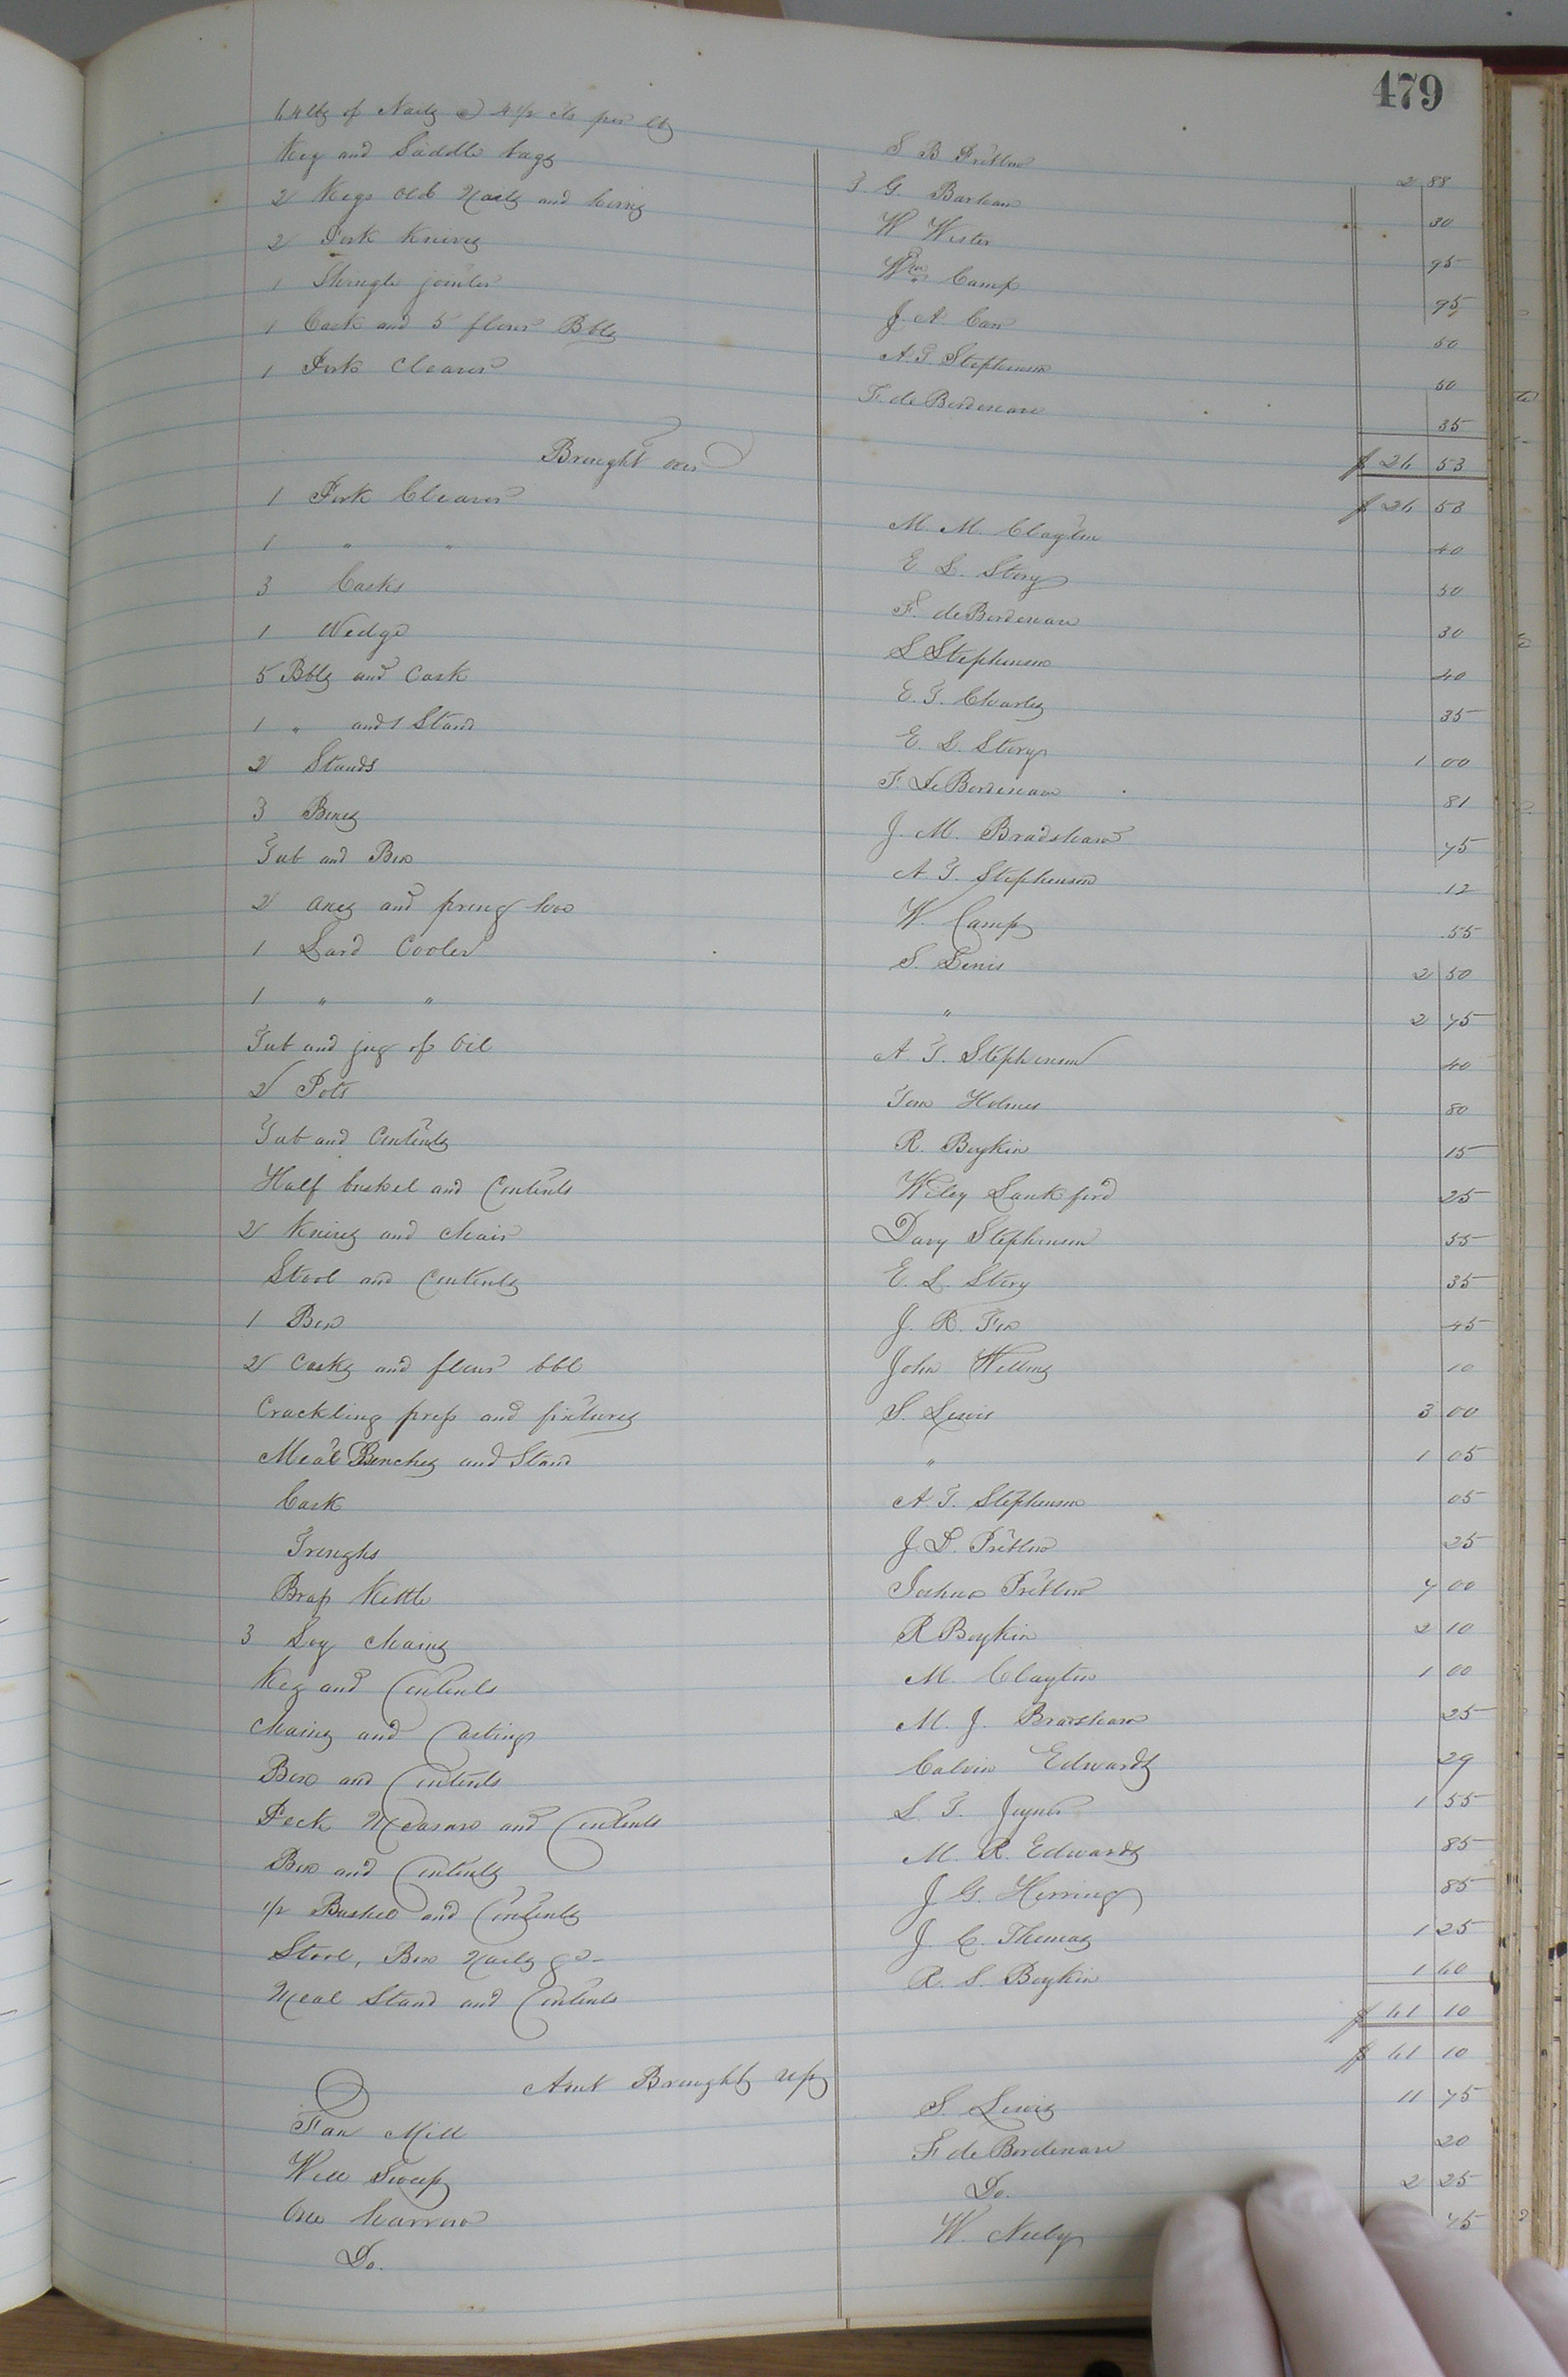 479
64 lbs of Nails @ 4 1/2 cts per lb S B Pretlow 2 88
Keg and Saddle bags J G. Barham 30
2 Kegs old Nails and hinges W Wester 95
2 Pork Knives Wm Camp 95
1 Shingle jointer J. A. Carr 50
1 Cask and 5 flour Bbls A. T. Stephenson 50
1 Pork Cleaver F. de Bordenave 35
$ 26 53
Brought over $ 26 53
1 Pork Cleaver M. M. Clayton 40
1 " " E L. Story 50
3 Casks F. deBordenave 30
1 Wedge S Stephenson 40
5 Bbls and Cask E. T. Charles 35
1 " and 1 Stand E. L. Story 1 00
2 Stands F. De Bordenave 81
3 Boxes J. M. Bradshaw 75
Tub and Box A T. Stephenson 12
2 axes and hoe W. Camp 55
1 Lard Cooler S. Lewis 2 50
1 " " " 2 75
Tub and jug of Oil A. T. Stephenson 40
2 Pots Tom Holmes 80
Tub and Contents R. Boykin 15
Half bushel and Contents Wiley Lankford 25
2 Knives and chair Davy Stephenson 55
Stool and Contents E. L. Story 35
1 Box J. R. Fox 45
2 Casks and flour bbl John Williams 10
Crackling press and fixtures S. Lewis 3 00
Meat Benches and Stand " 1 05
Cask A. T. Stephenson 05
Troughs J. D. Pretlow 25
Brass Kettle Joshua Pretlow 7 00
3 Log chains R Boykin 2 10
Keg and Contents M. Clayton 1 00
Chains and Castings M. J. Bradshaw 25
Box and Contents Calvin Edwards 29
Peck Measure and Contents L. T. Joyner 1 55
Box and Contents M. R. Edwards 85
1/2 Bushel and Contents J G. Herring 85
Stool, Box Nails &c J. C. Thomas 1 25
Meal Stand and Contents R. S. Boykin 1 60
$ 61 10
Amt Brought up $ 61 10
Fan Mill S. Lewis 11 75
Well Sweep F de Bordenave 20
One harrow Do. 2 25
Do. W. Neely 75